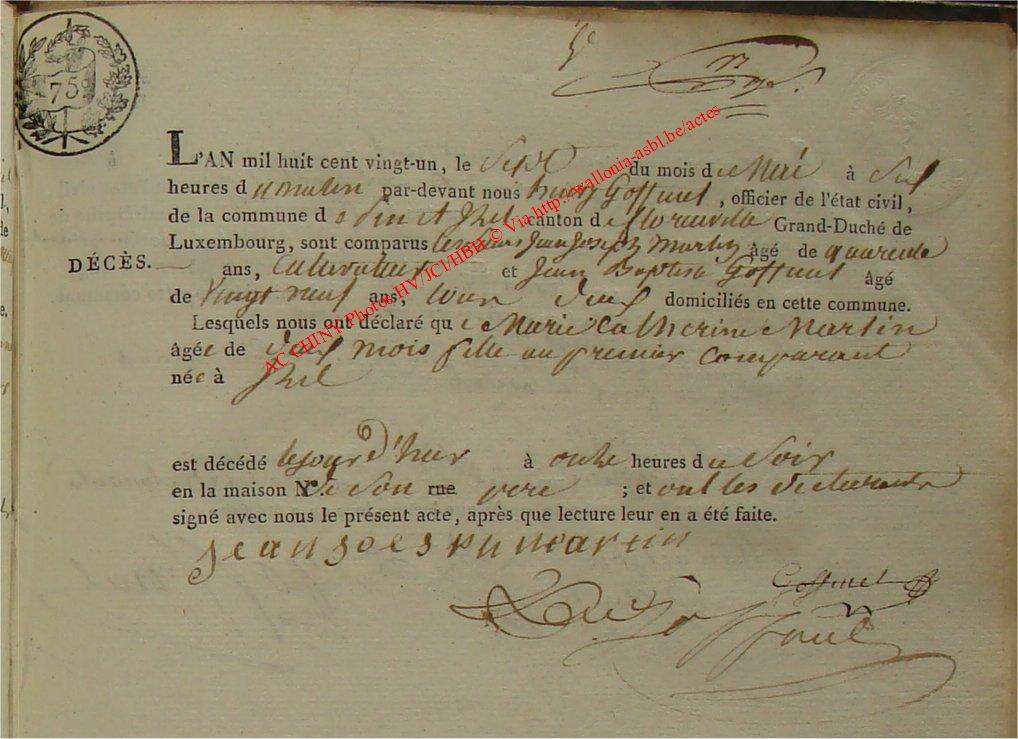 75c
L'AN mil huit cent vingt-un, le Sept du mois de Mai à Sept
heures du matin par-devant nous Goffinet, officier de l'état civil,
de la commune d canton de florenville Grand-Duché de
Luxembourg, sont comparus les Sieurs Jean Joseph Martin âgé de quarente
DÉCÈS.
ans, Cultivateur et Jean Baptiste Goffinet âgé
de Vingt neuf ans, tous deux domiciliés en cette commune.
Lesquels nous ont déclaré que Marie Catherine Martin
âgée de deux mois fille au premier Comparant
née à Izel
est décédé le jour d'hier à onze heures du Soir
en la maison No. de Son rue pere ; et ont les déclarants
signé avec nous le présent acte, après que lecture leur en a été faite.
jean joesph martin
Goffinet
Goffinet
AC CHINY Photos HV/JCl/HBH © Via http://wallonia-asbl.be/actes